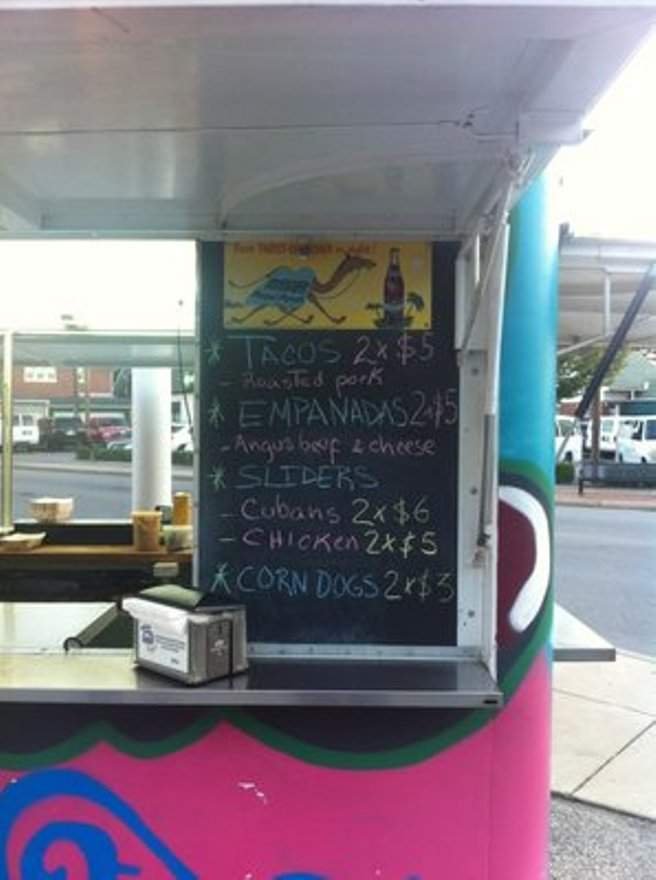 * TACOS 2x$5
- Roasted pork
* EMPANADAS 2x$5
- Angus beef & cheese
* SLIDERS
- Cubans 2x$6
- CHICKEN 2x$5
* CORN DOGS 2x$3